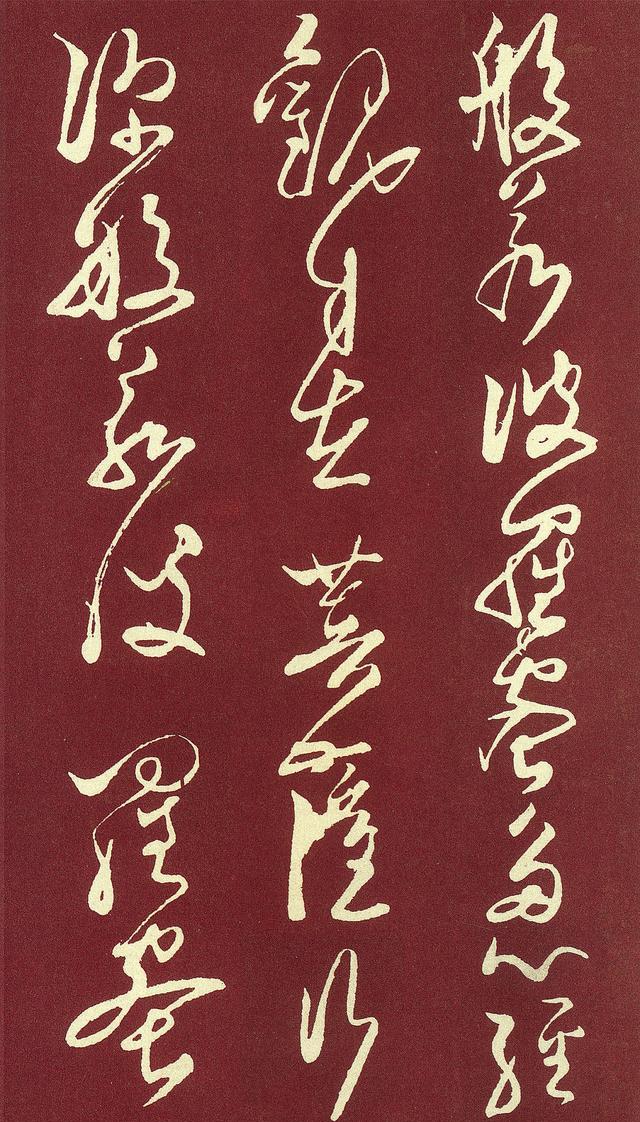 般若波羅蜜多心經
觀自在菩薩行
深般若波羅蜜